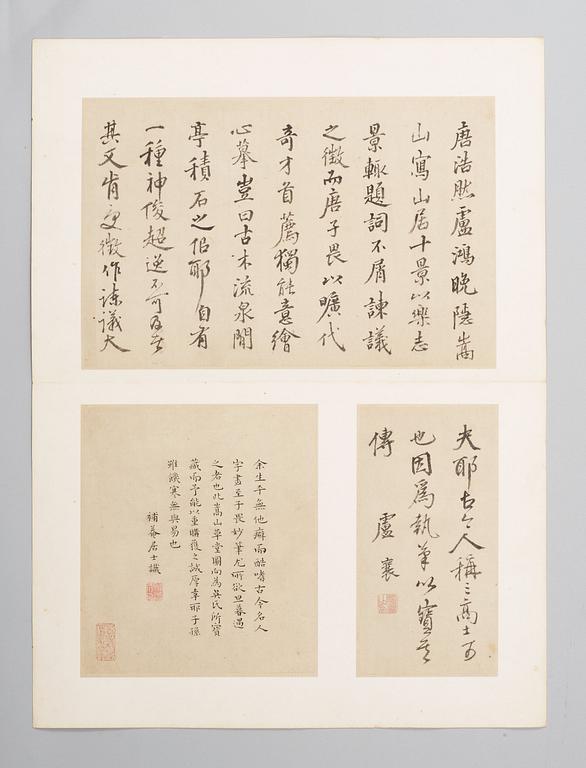 唐浩然盧鴻晚隱嵩
山寫山居十景以樂志
景輒題詞不屑諫議
之徵而唐子畏以曠代
奇才首薦獨能意繪
心摹豈曰古木流泉閒
亭積石之侶耶自有
一種神俊超逸不可及者
其又肯更徵作諫議大
夫耶古今人稱三高士可
也因為執筆以寶其
傳
盧襄
余生平無他癖而酷嗜古今名人
字畫至子畏妙筆尤所欲旦暮遇
之者也此嵩山草堂圖向為吳氏所寶
藏而予能以重購獲之誠厚幸耶子孫
雖饑寒無與易也
補菴居士識